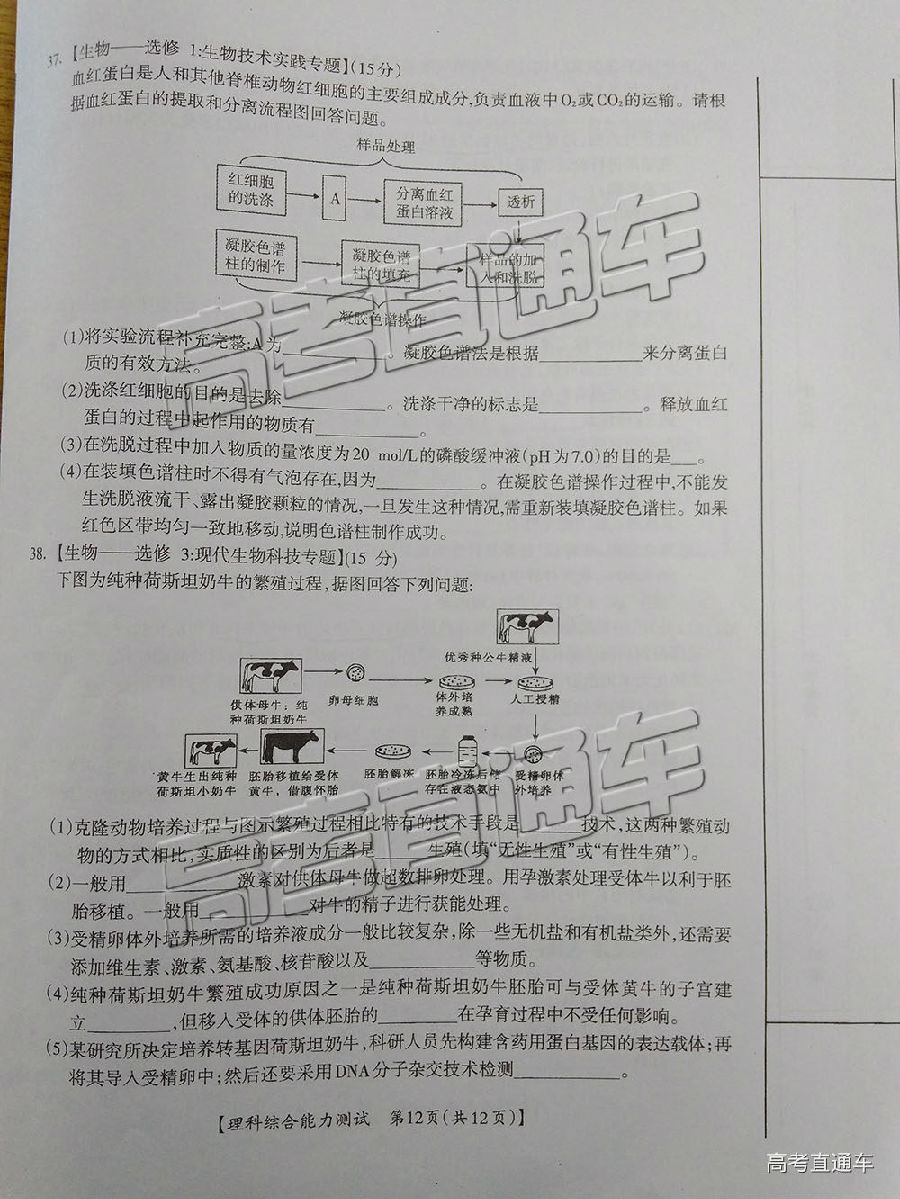 37.【生物——选修 1:生物技术实践专题】(15分)
血红蛋白是人和其他脊椎动物红细胞的主要组成成分,负责血液中O₂或CO₂的运输。请根
据血红蛋白的提取和分离流程图回答问题。
样品处理
红细胞
的洗涤
A
分离血红
蛋白溶液
透析
凝胶色谱
柱的制作
凝胶色谱
柱的填充
样品的加
入和洗脱
凝胶色谱操作
(1)将实验流程补充完整:A为__________。凝胶色谱法是根据__________来分离蛋白
质的有效方法。
(2)洗涤红细胞的目的是去除__________。洗涤干净的标志是__________。释放血红
蛋白的过程中起作用的物质有__________。
(3)在洗脱过程中加入物质的量浓度为20 mol/L的磷酸缓冲液(pH为7.0)的目的是___。
(4)在装填色谱柱时不得有气泡存在,因为__________。在凝胶色谱操作过程中,不能发
生洗脱液流干、露出凝胶颗粒的情况,一旦发生这种情况,需重新装填凝胶色谱柱。如果
红色区带均匀一致地移动,说明色谱柱制作成功。
38.【生物——选修 3:现代生物科技专题】(15 分)
下图为纯种荷斯坦奶牛的繁殖过程,据图回答下列问题:
优秀种公牛精液
供体母牛:纯
种荷斯坦奶牛
卵母细胞
体外培
养成熟
人工授精
黄牛生出纯种
荷斯坦小奶牛
胚胎移植给受体
黄牛,借腹怀胎
胚胎解冻
胚胎冷冻后保
存在液态氮中
受精卵体
外培养
(1)克隆动物培养过程与图示繁殖过程相比特有的技术手段是______技术,这两种繁殖动
物的方式相比,实质性的区别为后者是______生殖(填“无性生殖”或“有性生殖”)。
(2)一般用__________激素对供体母牛做超数排卵处理。用孕激素处理受体牛以利于胚
胎移植。一般用__________对牛的精子进行获能处理。
(3)受精卵体外培养所需的培养液成分一般比较复杂,除一些无机盐和有机盐类外,还需要
添加维生素、激素、氨基酸、核苷酸以及__________等物质。
(4)纯种荷斯坦奶牛繁殖成功原因之一是纯种荷斯坦奶牛胚胎可与受体黄牛的子宫建
立________,但移入受体的供体胚胎的________在孕育过程中不受任何影响。
(5)某研究所决定培养转基因荷斯坦奶牛,科研人员先构建含药用蛋白基因的表达载体;再
将其导入受精卵中;然后还要采用DNA分子杂交技术检测__________。
【理科综合能力测试 第12页(共12页)】
高考直通车
高考直通车
高考直通车